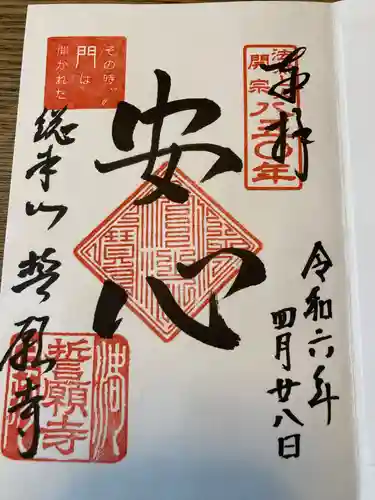 奉拝
法然
開宗八五〇年
安心
その時、〃
門は
開かれた
総本山 誓願寺
誓願寺
令和六年
四月廿八日